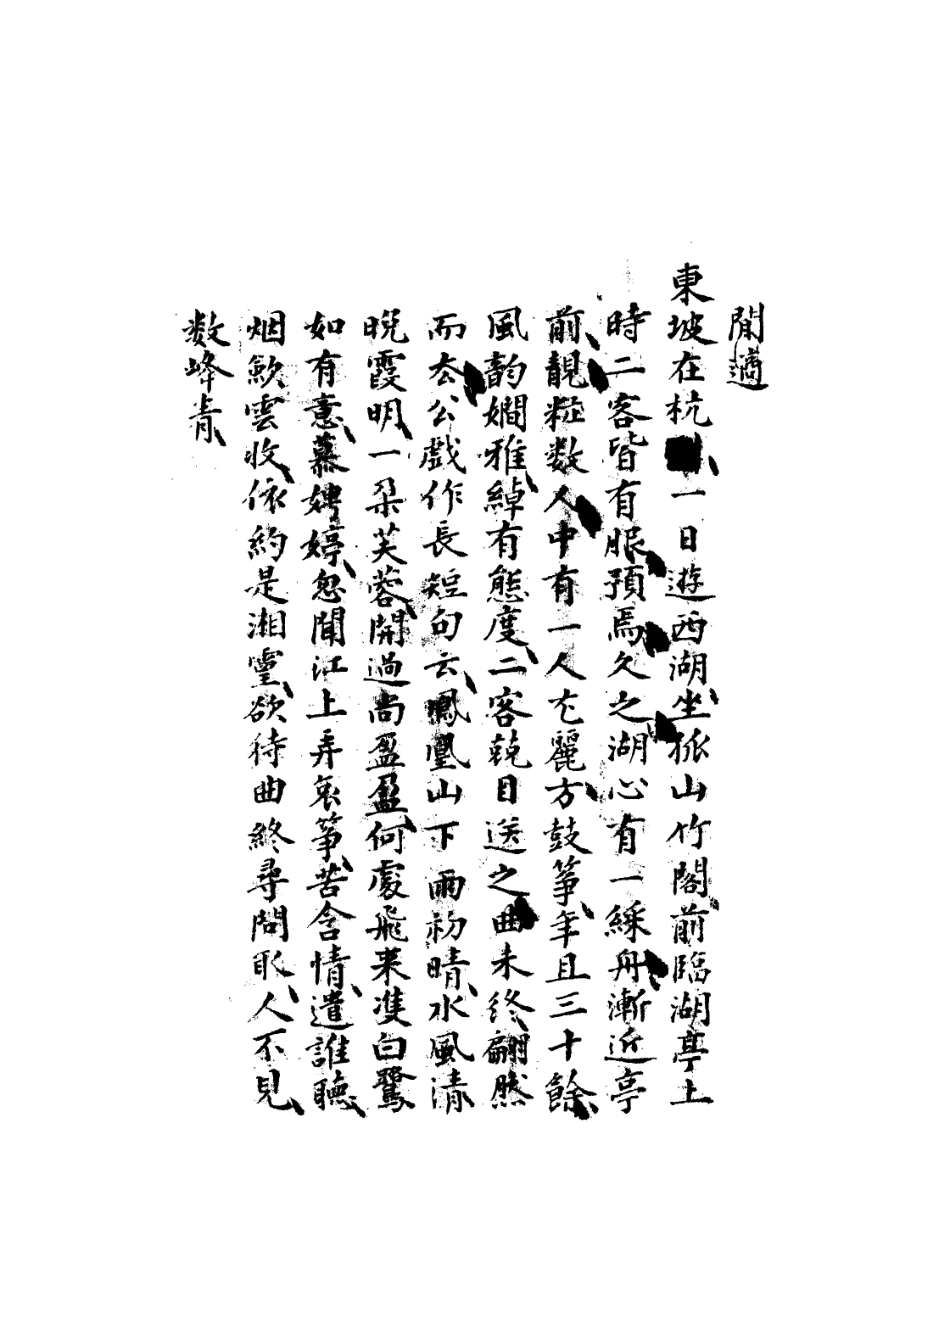 閒適
東坡在杭一日遊西湖坐孤山竹閣前臨湖亭上
時二客皆有服預焉久之湖心有一綵舟漸近亭
前靚粧数人中有一人尤麗方鼓箏年且三十餘
風韵嫺雅綽有態度二客競目送之曲未終翩然
而去公戲作長短句云鳳凰山下雨初晴水風清
晚霞明一朶芙蓉開過尚盈盈何處飛来雙白鷺
如有意慕娉婷忽聞江上弄哀箏苦含情遣誰聽
烟歛雲收依約是湘靈欲待曲終尋問取人不見
数峰青